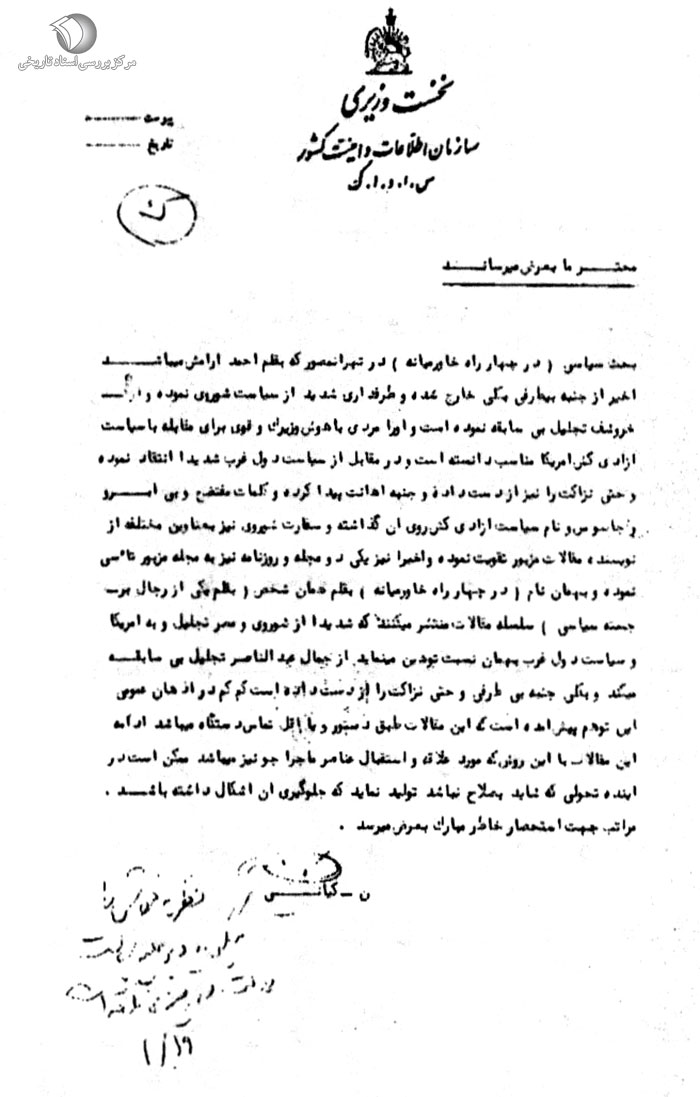 مرکز بررسی اسناد تاریخی
نخست وزیری
سازمان اطلاعات و امنیت کشور
س.ا.و.ا.ک
پیوست
تاریخ
محترما بعرض میرساند
بحث سیاسی ( در چهار راه خاورمیانه ) در تهرانمصور که بقلم احمد آرامش میباشد
اخیر از جنبه بیطرفی بکلی خارج شده و طرفداری شدید از سیاست شوروی نموده و از
خروشف تجلیل بی سابقه نموده است و اورا مردی باهوش وزیرک و قوی برای مقابله با سیاست
ازادی کش امریکا مناسب دانسته است و در مقابل از سیاست دول غرب شدیدا انتقاد نموده
و حتی نزاکت را نیز از دست داده و جنبه اهانت پیدا کرده و کلمات مفتضح و بی ابرو
و جاسوس و نام سیاست ازادی کش روی ان گذاشته و سفارت شوروی نیز بعناوین مختلفه از
نویسنده مقالات مزبور تقویت نموده واخیرا نیز یکی دو مجله و روزنامه نیز به مجله مزبور تاسی
نموده و بهمان نام ( در چهار راه خاورمیانه ) بقلم همان شخص ( بقلم یکی از رجال بر
جسته سیاسی ) سلسله مقالات منتشر میکنند که شدیدا از شوروی و مصر تجلیل و به امریکا
و سیاست دول غرب بهمان نسبت توهین مینماید از جمال عبدالناصر تجلیل بی سابقه
میکند و بکلی جنبه بی طرفی و حتی نزاکت را از دست داده است کم کم در اذهان عمومی
این توهم پیش امده است که این مقالات طبق دستور و یا اقل تماس دستگاه میباشد ادامه
این مقالات با این روش که مورد علاقه و استقبال عناصر ماجرا جو نیز میباشد ممکن است در
اینده تحولی که شاید بصلاح نباشد تولید نماید که جلوگیری ان اشکال داشته باشد .
مراتب جهت استحضار خاطر مبارک بعرض میرسد .
ن - کیانی
۱/۱۹